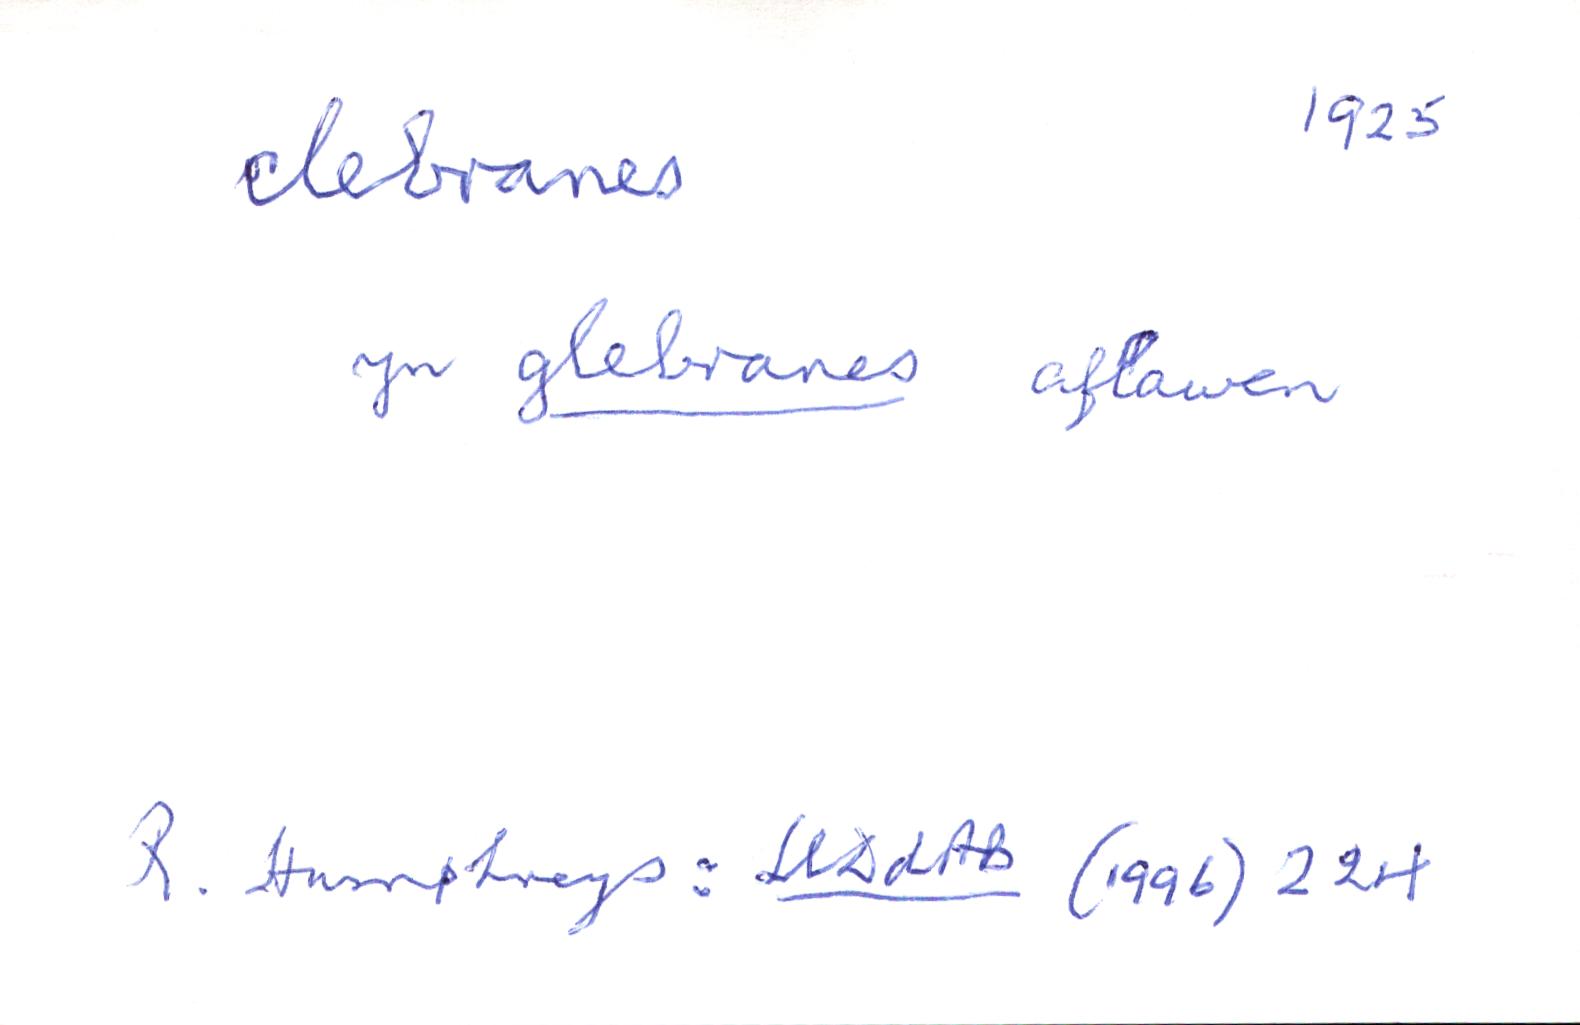 1925
clebranes
yn glebranes aflawen
R. Humphreys: LlDdAB (1996) 224